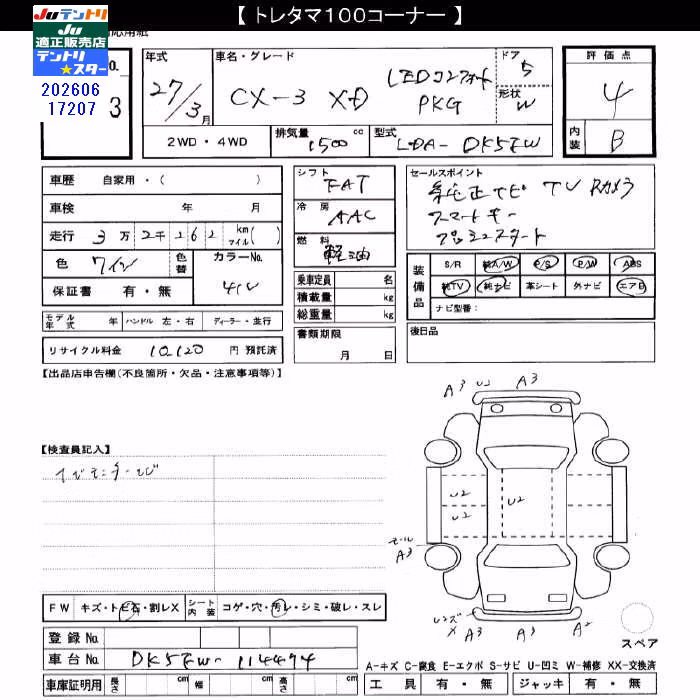 【 トレタマ100コーナー 】
Juテントリ
Ju
適正販売店
テントリ
★スター
202606
17207
No.
3
年式
27/3月
車名・グレード
CX-3 XD
LEDコンフォート
PKG
ドア 5
形状 W
評価点
4
内装 B
2WD・4WD
排気量 1500 cc
型式 LDA-DK5FW
車歴 自家用・( )
車検 年 月
走行 3万 2千 262 km マイル( )
色 ワイン
色替
カラーNo. 41V
保証書 有・無
モデル年式 年 ハンドル 左・右 ディーラー・並行
リサイクル料金 10120 円 預託済
シフト FAT
冷房 AAC
燃料 軽油
乗車定員 名
積載量 kg
総重量 kg
書類期限
月 日
セールスポイント
純正ナビ TV Rカメラ
スマートキー
プッシュスタート
装備品
S/R 純A/W P/S P/W ABS
純TV 純ナビ 革シート 外ナビ エアB
ナビ型番:
後日品
【出品店申告欄(不良箇所・欠品・注意事項等)】
【検査員記入】
A3 A3
U2
U2
U2
モール
A3
A3 A3
FW キズ・トビ石・割レX シート内装 コゲ・穴・汚レ・シミ・破レ・スレ
登録 No.
車台 No. DK5FW-114494
車庫証明用 長さ cm 幅 cm 高さ cm
スペア
A-キズ C-腐食 E-エクボ S-サビ U-凹ミ W-補修 XX-交換済
工具 有・無 ジャッキ 有・無